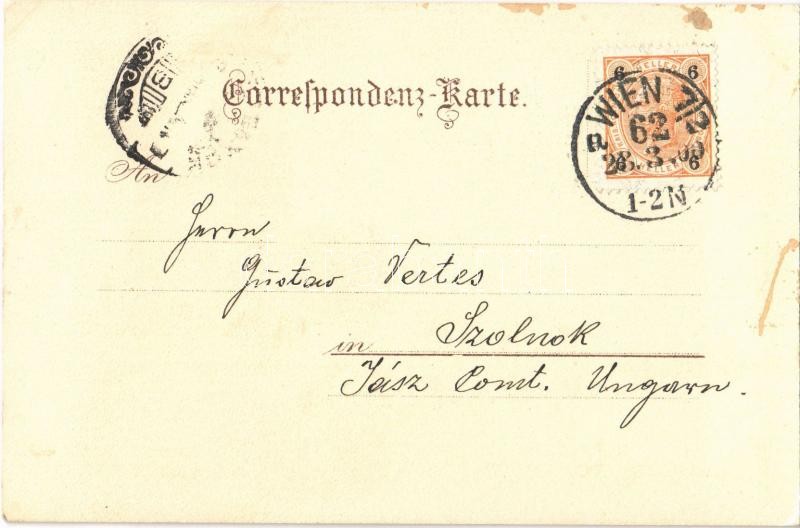 Correspondenz-Karte.
6 HELLER 6
WIEN 7/2
62
28.3.00
6 HELLER 6
1-2N
An
Herrn
Gustav Vertes
in Szolnok
Jász Comt. Ungarn.